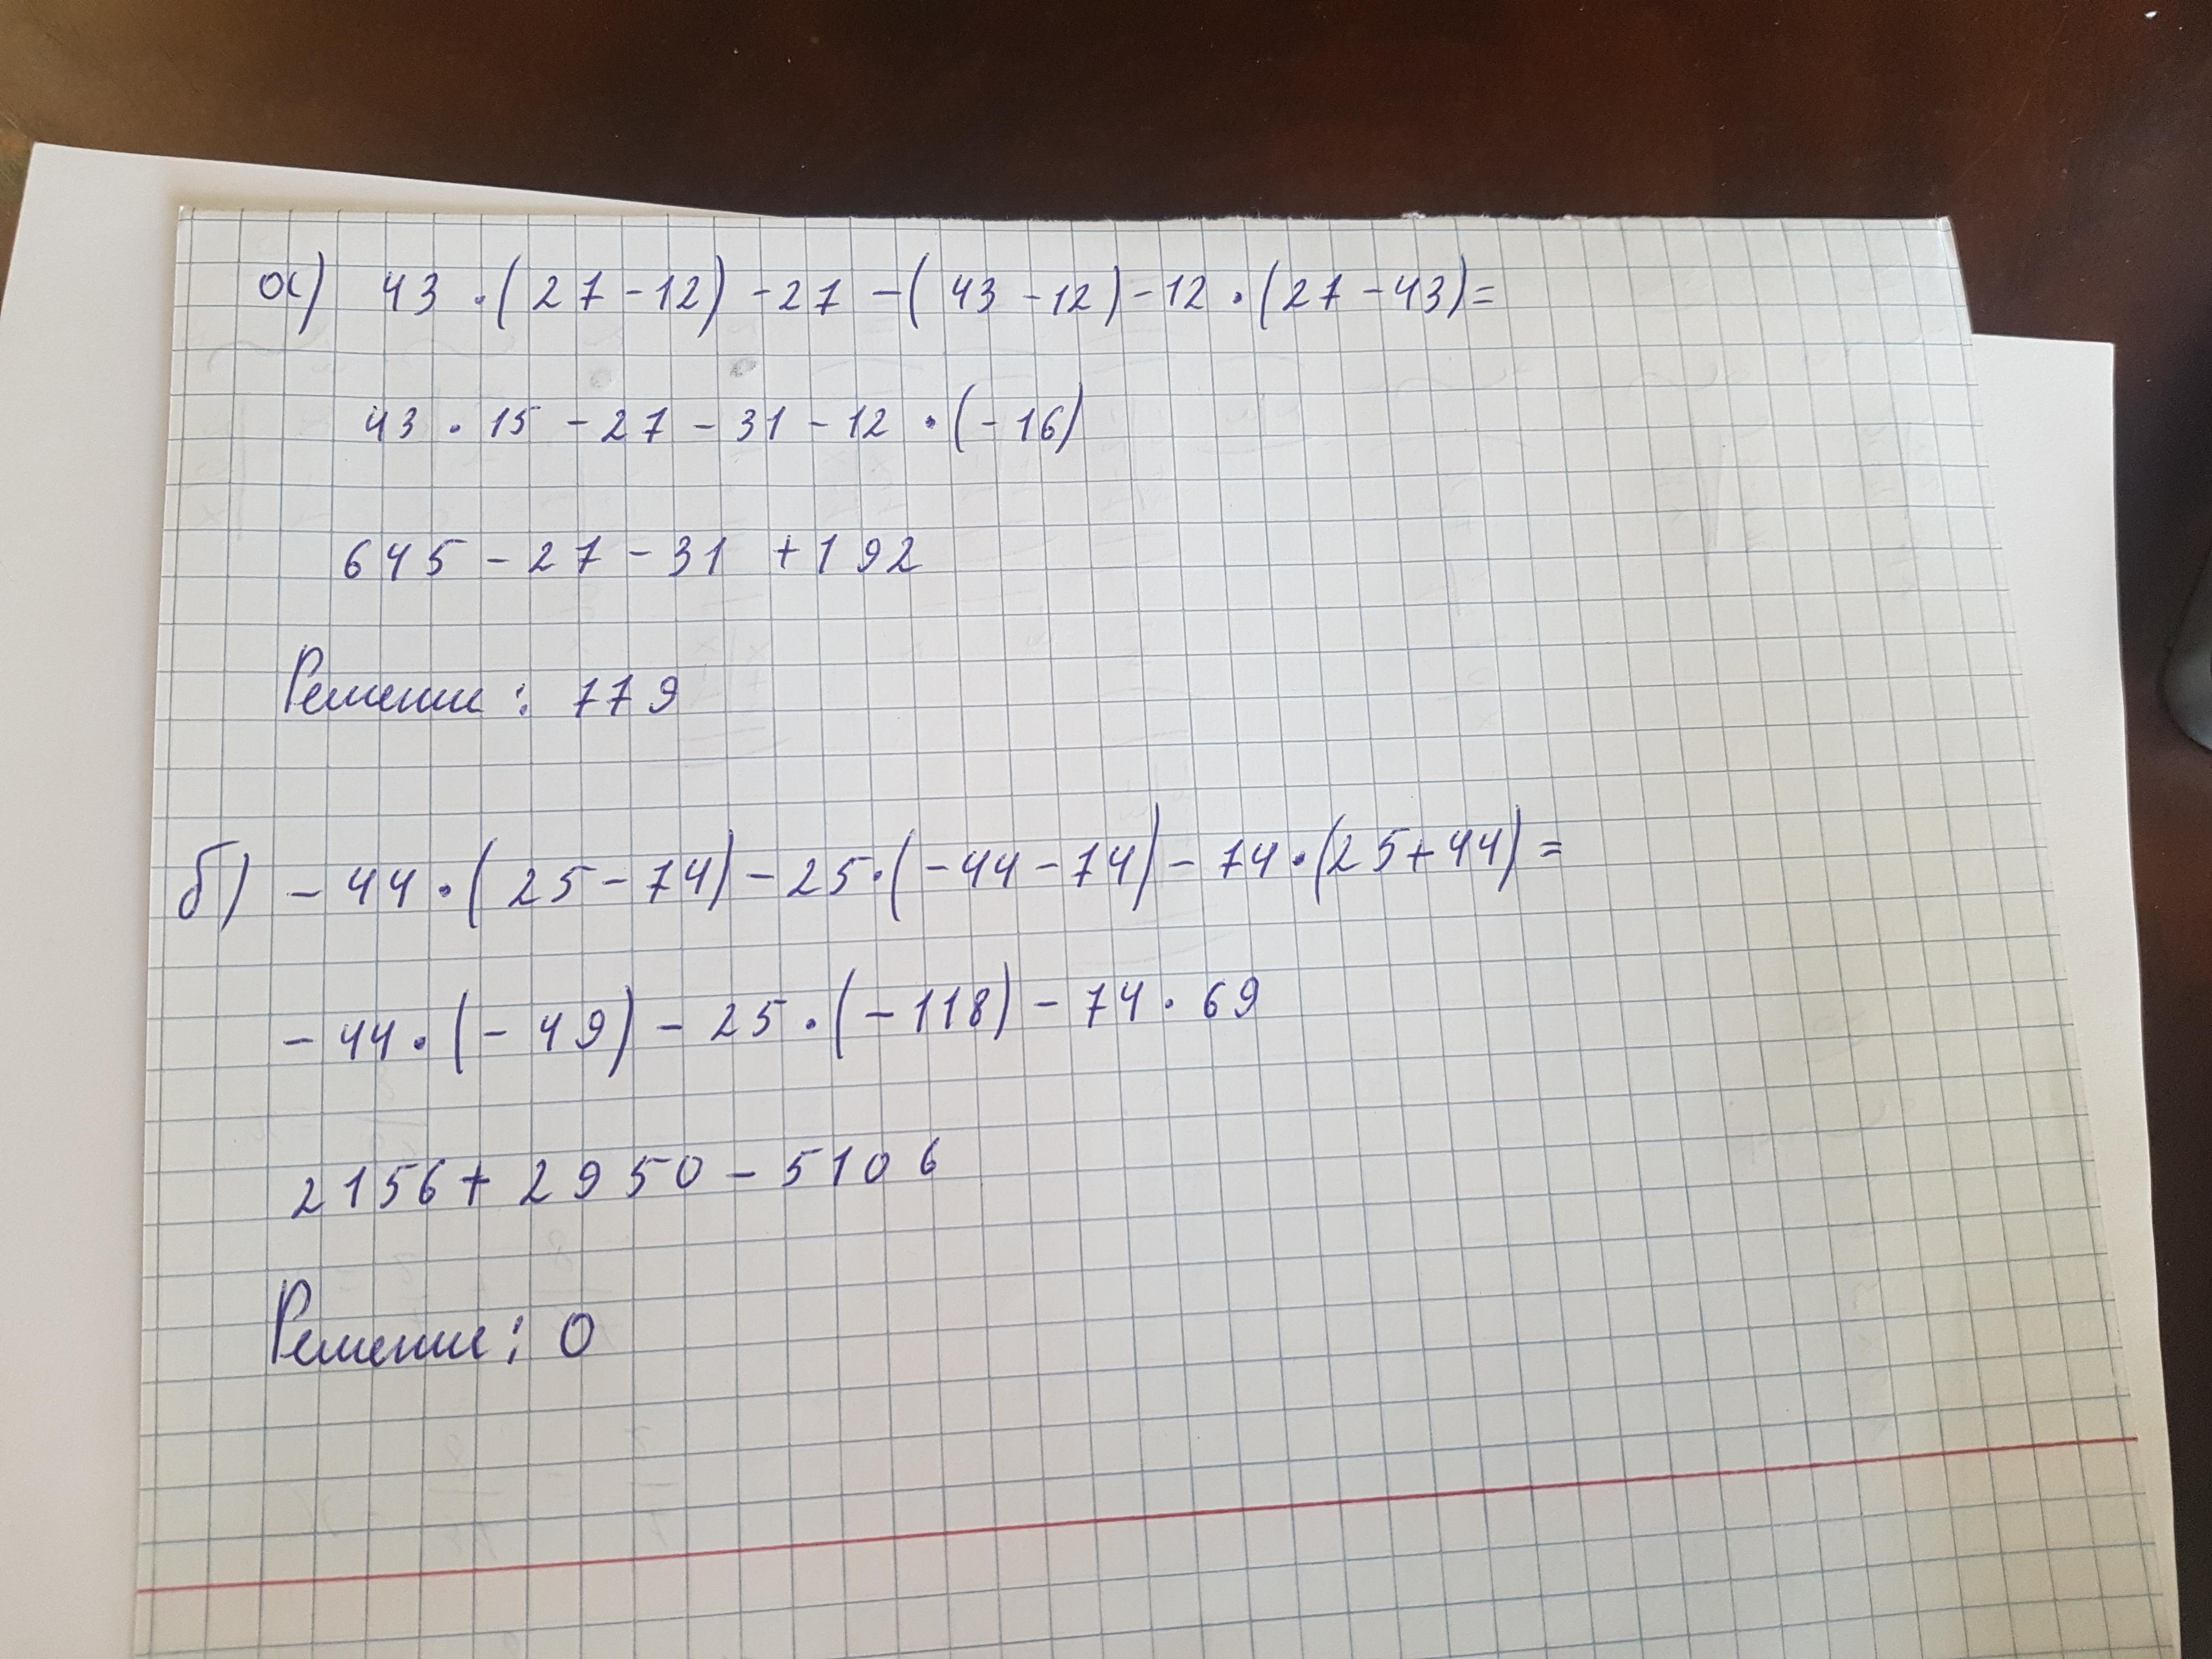 а) 43 · (27 - 12) - 27 - (43 - 12) - 12 · (27 - 43) =
43 · 15 - 27 - 31 - 12 · (- 16)
645 - 27 - 31 + 192
Решение: 779
б) - 44 · (25 - 74) - 25 · (- 44 - 74) - 74 · (25 + 44) =
- 44 · (- 49) - 25 · (- 118) - 74 · 69
2156 + 2950 - 5106
Решение: 0